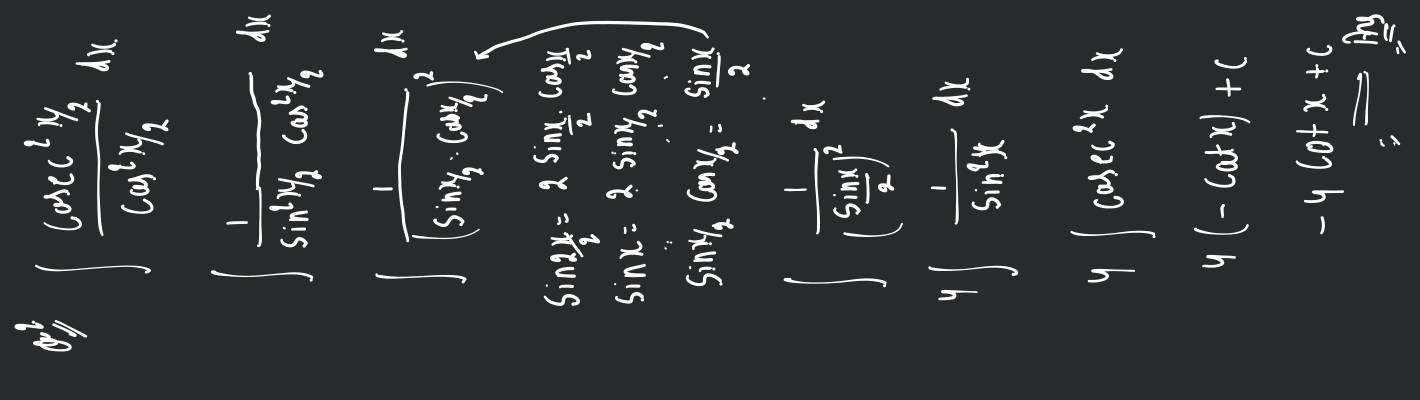 Q2.
∫ cosec² x/2 / cos² x/2 dx.
∫ 1 / sin² x/2 cos² x/2 dx
∫ 1 / (sin x/2 . cos x/2)² dx
sin 2x/2 = 2 sin x/2 . cos x/2
sin x = 2 sin x/2 cos x/2
∴ sin x/2 cos x/2 = sin x / 2
∫ 1 / (sin x / 2)² dx
4 ∫ 1 / sin² x dx
4 ∫ cosec² x dx
4 (- cot x) + c
- 4 cot x + c